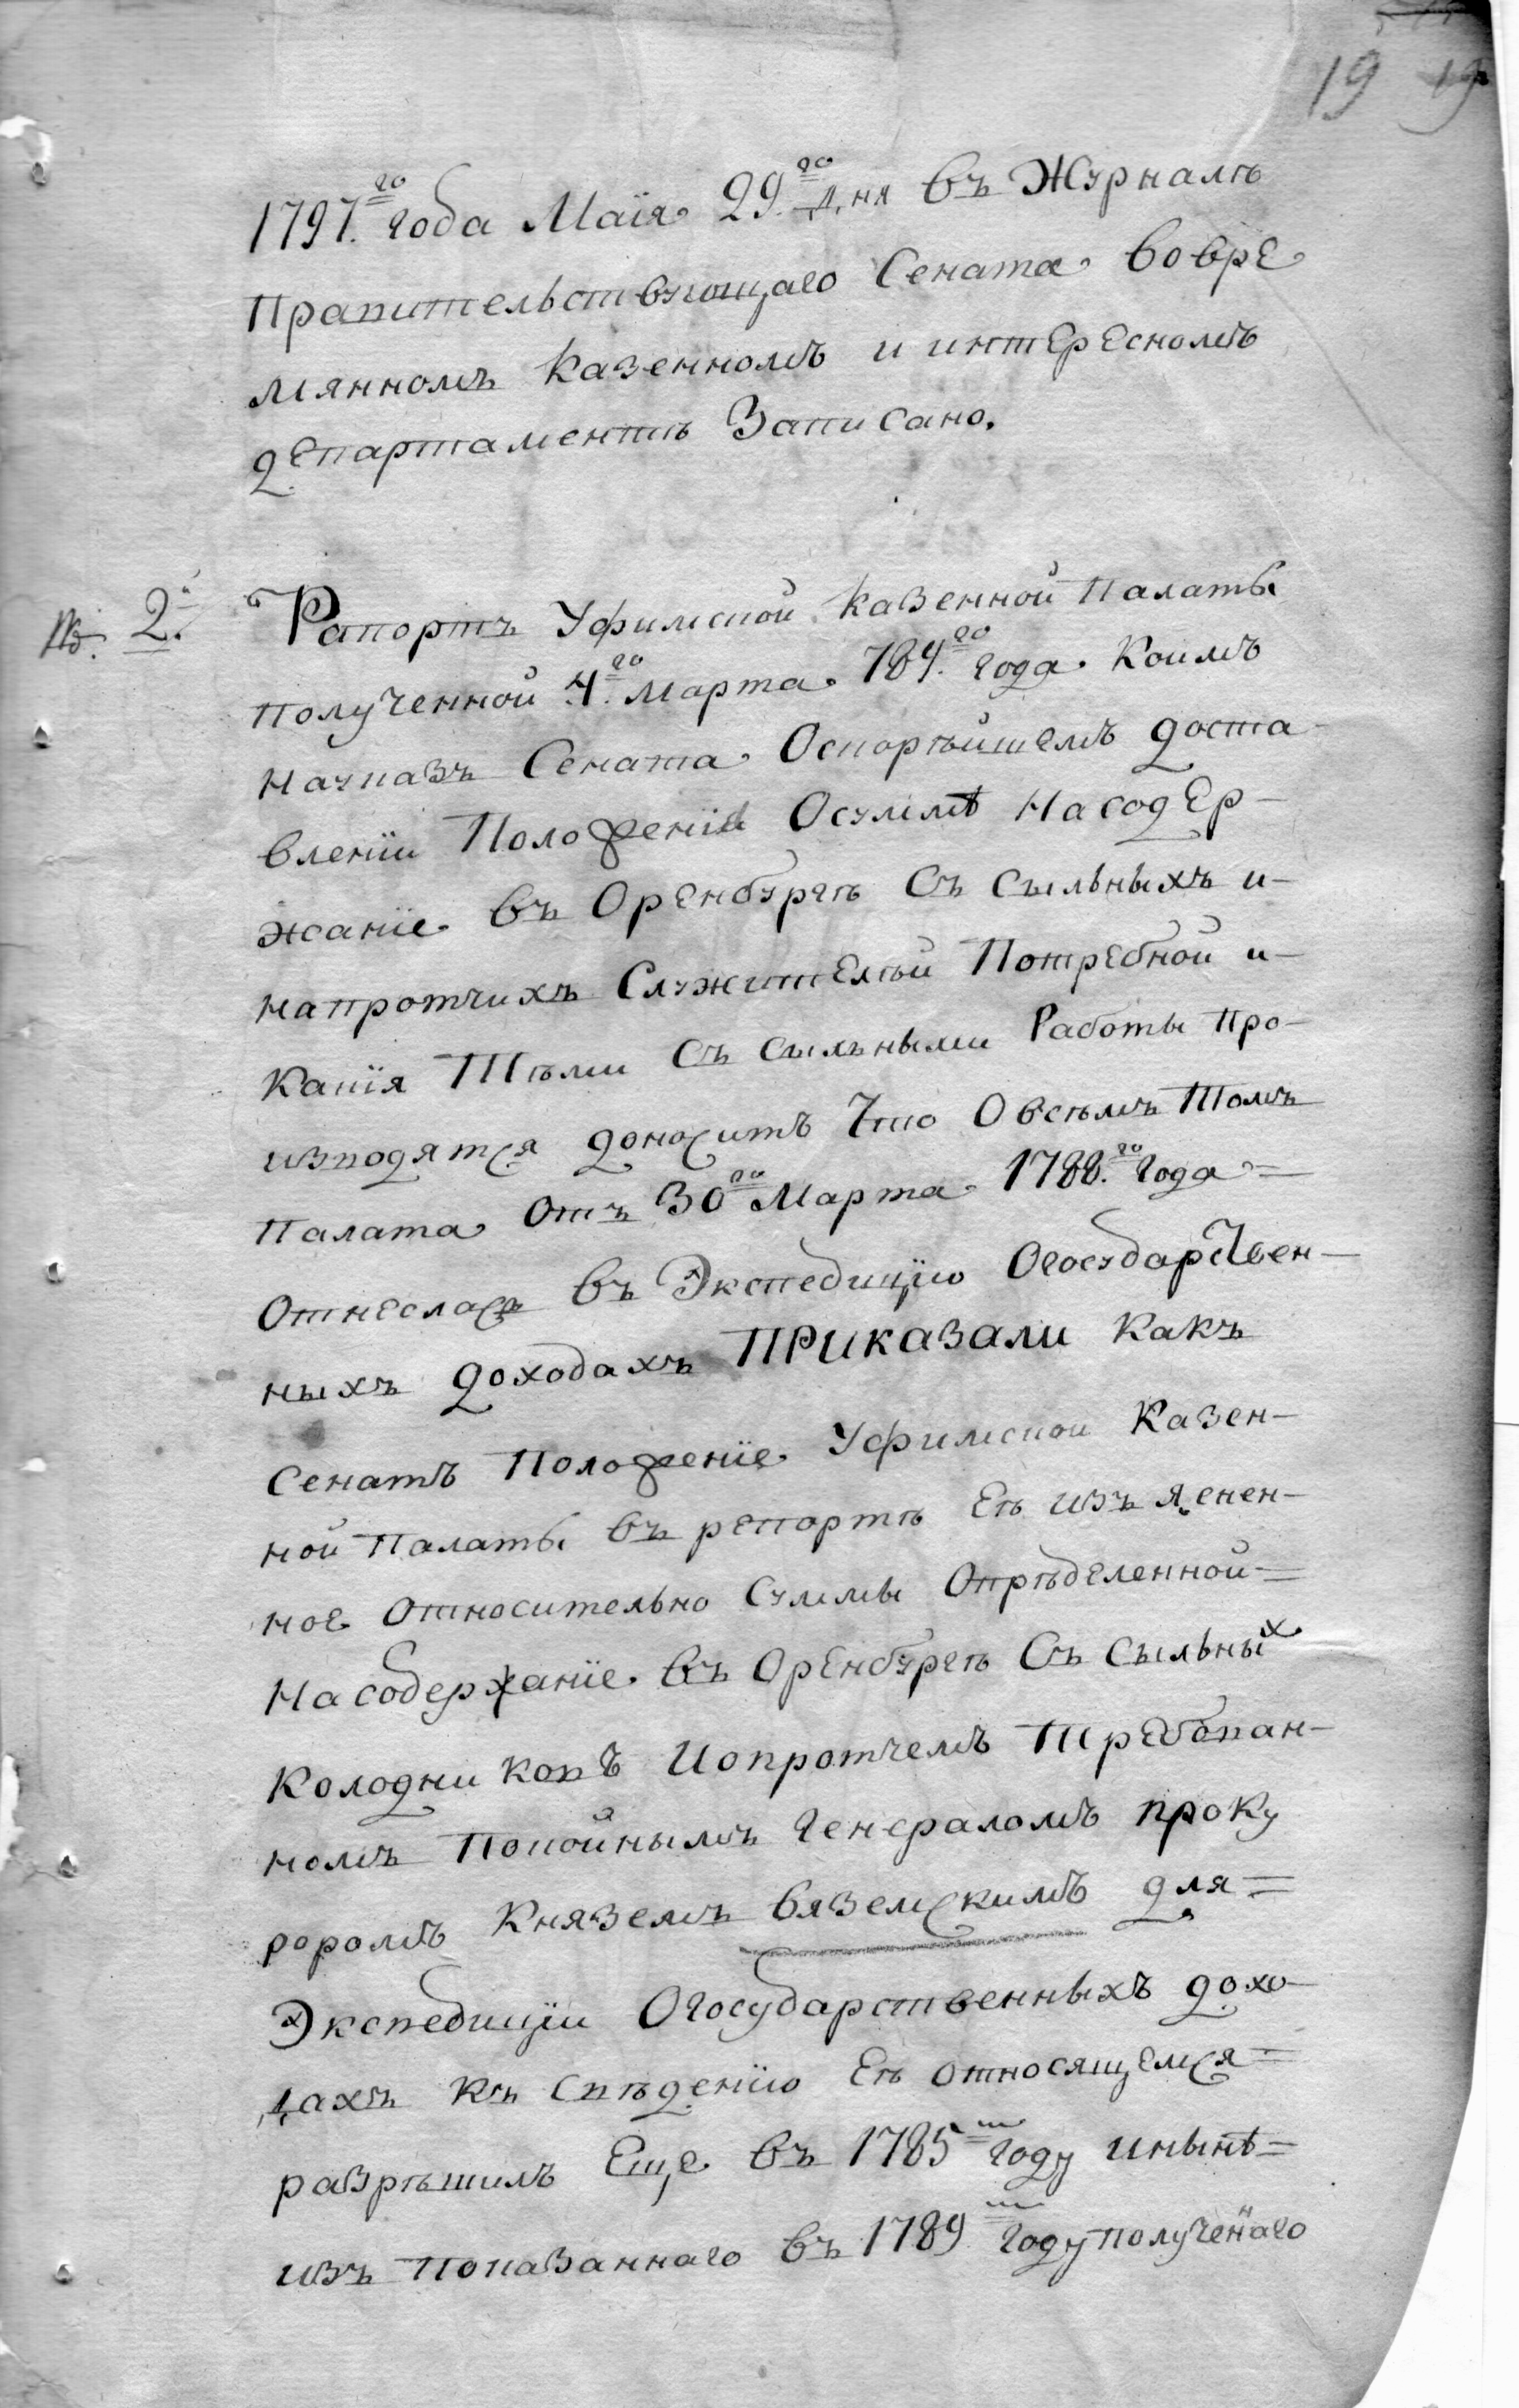 19 19
1797.го года Маiя 29.го дня въ Журналѣ
Правительствующаго Сената вовре
мянномъ казенномъ и интересномъ
департаментѣ Записано.
№. 2.й Рапортъ Уфимской казенной палаты
полученной 4.го марта 789.го года. Коимъ
науказъ Сената Оскорѣйшемъ доста
вленiи Положенiя Осуммѣ Насодер-
жанiе въ Оренбургѣ Съ сыльныхъ и-
напротчихъ Служителѣй Потребной и-
Какiя Тѣми Съ сыльными Работы про-
изводятся доноситъ Что Овсѣмъ Томъ
Палата Отъ 30го Марта 1788.го Года =
Отнеслась въ Экспедицiю Огосударствен-
ныхъ доходахъ ПРиказали Какъ
Сенатъ Положенiе Уфимской Казен-
ной Палаты въ репортѣ Еѣ изъ яснен-
ное Относительно Суммы Опрѣделенной =
На содержанiе въ Оренбургѣ Съ сыльных
Колодниковъ Иопротчемъ Требован-
номъ Покойнымъ Генераломъ проку
роромъ Княземъ вяземскимъ для =
Экспедицiи Огосударственныхъ дохо-
дахъ Къ Свѣденiю Еѣ относящемся =
разрѣшилъ Еще въ 1785м Году инынѣ =
изъ Показаннаго въ 1789м Году полученнаго